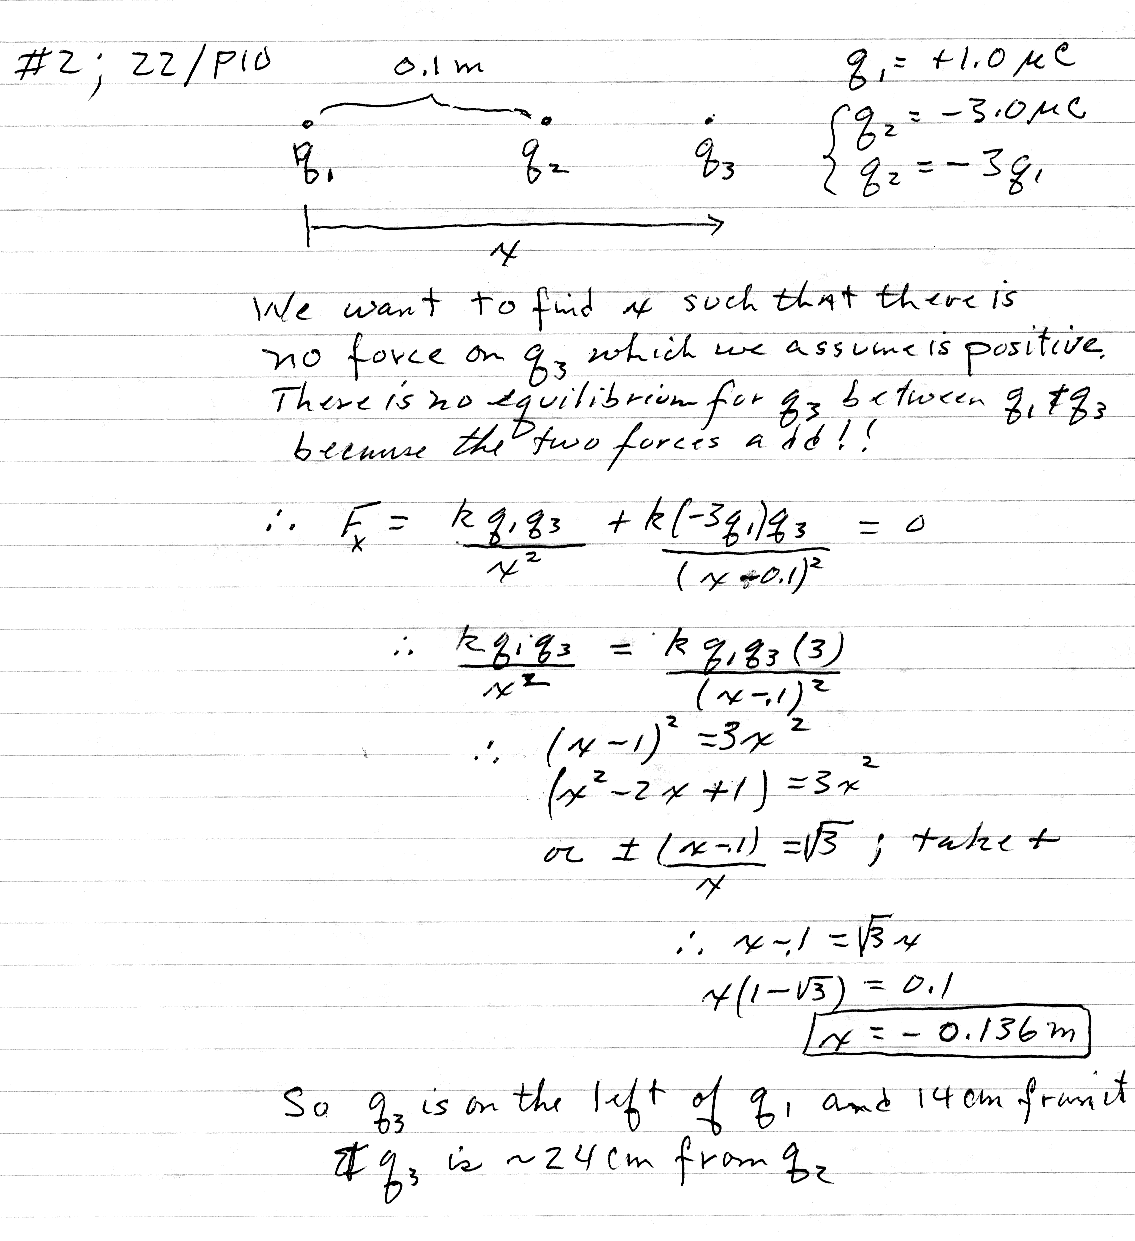 #2; 22/P10 0.1m q₁ = +1.0 μC
q₂ = -3.0 μC
q₁ q₂ q₃ q₂ = -3q₁
x
We want to find x such that there is
no force on q₃ which we assume is positive.
There is no equilibrium for q₃ between q₁ & q₃
because the two forces add!!
∴ Fₓ = kq₁q₃/x² + k(-3q₁)q₃/(x-0.1)² = 0
∴ kq₁q₃/x² = kq₁q₃(3)/(x-.1)²
∴ (x-1)² = 3x²
(x²-2x+1) = 3x²
or ± (x-.1)/x = √3 ; take +
∴ x-.1 = √3 x
x(1-√3) = 0.1
x = - 0.136 m
So q₃ is on the left of q₁ and 14 cm from it
& q₃ is ~24 cm from q₂